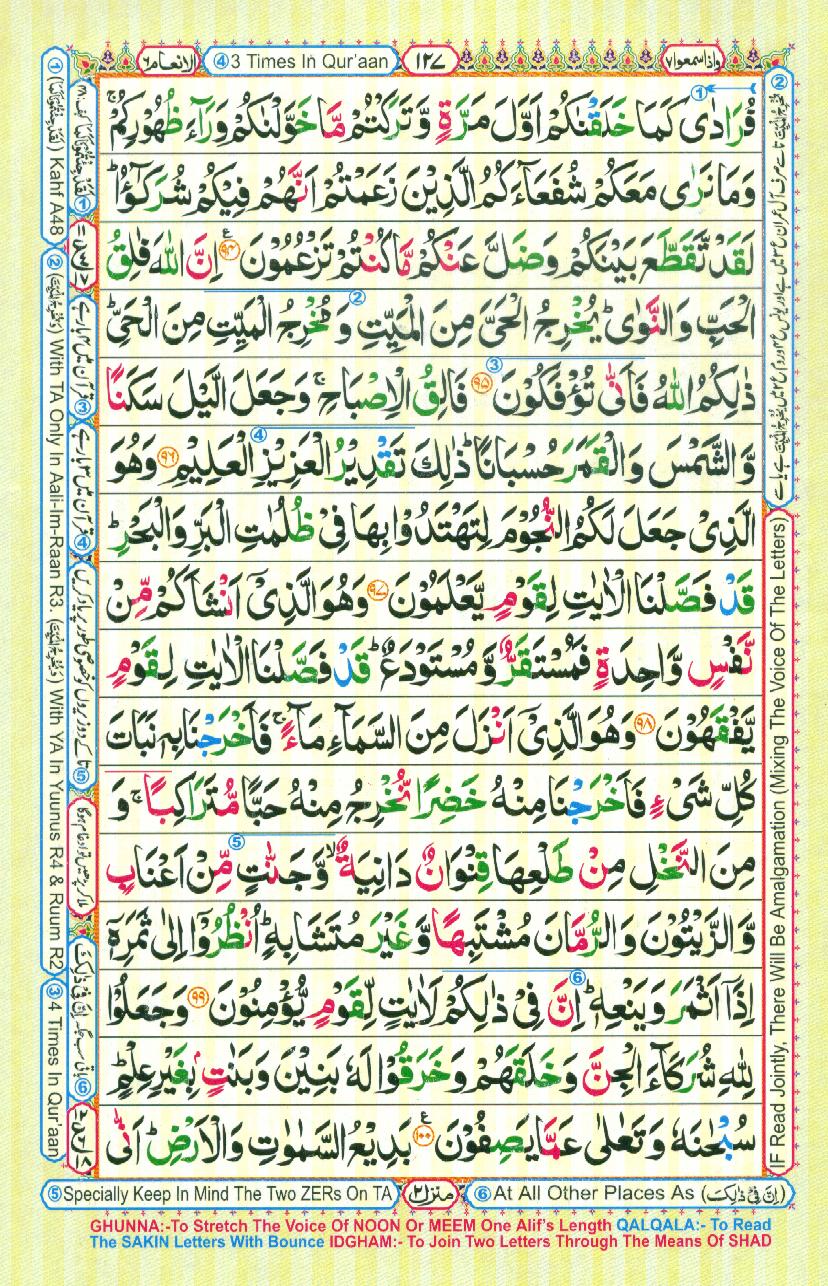 الانعام ٦
④3 Times In Qur'aan
١٢٧
واذا سمعوا ٧
فُرَادٰى كَمَا خَلَقْنٰكُمْ اَوَّلَ مَرَّةٍ وَّتَرَكْتُمْ مَّا خَوَّلْنٰكُمْ وَرَآءَ ظُهُوْرِكُمْ ۚ
وَمَا نَرٰى مَعَكُمْ شُفَعَآءَكُمُ الَّذِيْنَ زَعَمْتُمْ اَنَّهُمْ فِيْكُمْ شُرَكٰٓؤُا ؕ
لَقَدْ تَّقَطَّعَ بَيْنَكُمْ وَضَلَّ عَنْكُمْ مَّا كُنْتُمْ تَزْعُمُوْنَ ﴿۹۴﴾ اِنَّ اللّٰهَ فٰلِقُ
الْحَبِّ وَالنَّوٰى ؕ يُخْرِجُ الْحَىَّ مِنَ الْمَيِّتِ وَمُخْرِجُ الْمَيِّتِ مِنَ الْحَىِّ ؕ
ذٰلِكُمُ اللّٰهُ فَاَنّٰى تُؤْفَكُوْنَ ﴿۹۵﴾ فَالِقُ الْاِصْبَاحِ ۚ وَجَعَلَ الَّيْلَ سَكَنًا
وَّالشَّمْسَ وَالْقَمَرَ حُسْبَانًا ؕ ذٰلِكَ تَقْدِيْرُ الْعَزِيْزِ الْعَلِيْمِ ﴿۹۶﴾ وَهُوَ
الَّذِىْ جَعَلَ لَكُمُ النُّجُوْمَ لِتَهْتَدُوْا بِهَا فِىْ ظُلُمٰتِ الْبَرِّ وَالْبَحْرِ ؕ
قَدْ فَصَّلْنَا الْاٰيٰتِ لِقَوْمٍ يَّعْلَمُوْنَ ﴿۹۷﴾ وَهُوَ الَّذِىْٓ اَنْشَاَكُمْ مِّنْ
نَّفْسٍ وَّاحِدَةٍ فَمُسْتَقَرٌّ وَّمُسْتَوْدَعٌ ؕ قَدْ فَصَّلْنَا الْاٰيٰتِ لِقَوْمٍ
يَّفْقَهُوْنَ ﴿۹۸﴾ وَهُوَ الَّذِىْٓ اَنْزَلَ مِنَ السَّمَآءِ مَآءً ۚ فَاَخْرَجْنَا بِهٖ نَبَاتَ
كُلِّ شَىْءٍ فَاَخْرَجْنَا مِنْهُ خَضِرًا نُّخْرِجُ مِنْهُ حَبًّا مُّتَرَاكِبًا ۚ وَ
مِنَ النَّخْلِ مِنْ طَلْعِهَا قِنْوَانٌ دَانِيَةٌ ۙ وَّجَنّٰتٍ مِّنْ اَعْنَابٍ
وَّالزَّيْتُوْنَ وَالرُّمَّانَ مُشْتَبِهًا وَّغَيْرَ مُتَشَابِهٍ ؕ اُنْظُرُوْٓا اِلٰى ثَمَرِهٖٓ
اِذَآ اَثْمَرَ وَيَنْعِهٖ ؕ اِنَّ فِىْ ذٰلِكُمْ لَاٰيٰتٍ لِّقَوْمٍ يُّؤْمِنُوْنَ ﴿۹۹﴾ وَجَعَلُوْا
لِلّٰهِ شُرَكَآءَ الْجِنَّ وَخَلَقَهُمْ وَخَرَقُوْا لَهٗ بَنِيْنَ وَبَنٰتٍۢ بِغَيْرِ عِلْمٍ ؕ
سُبْحٰنَهٗ وَتَعٰلٰى عَمَّا يَصِفُوْنَ ﴿۱۰۰﴾ بَدِيْعُ السَّمٰوٰتِ وَالْاَرْضِ ؕ اَنّٰى
IF Read Jointly, There Will Be Amalgamation (Mixing The Voice Of The Letters)
① Kahf A48 ② With TA Only In Aali-Im-Raan R3. With YA In Yuunus R4 & Ruum R2 ③ 4 Times In Qur'aan
⑤Specially Keep In Mind The Two ZERs On TA
منزل ٢
⑥At All Other Places As (اِنَّ فِىْ ذٰلِكَ)
GHUNNA:-To Stretch The Voice Of NOON Or MEEM One Alif's Length QALQALA:- To Read
The SAKIN Letters With Bounce IDGHAM:- To Join Two Letters Through The Means Of SHAD